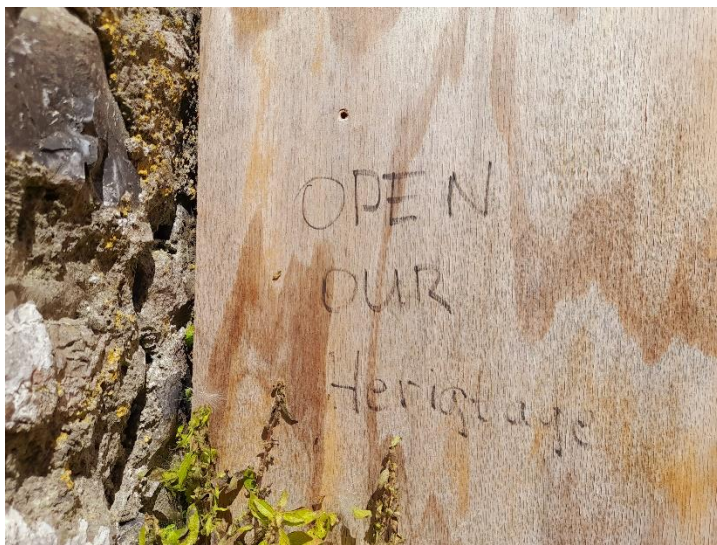 OPEN
OUR
Herigtage